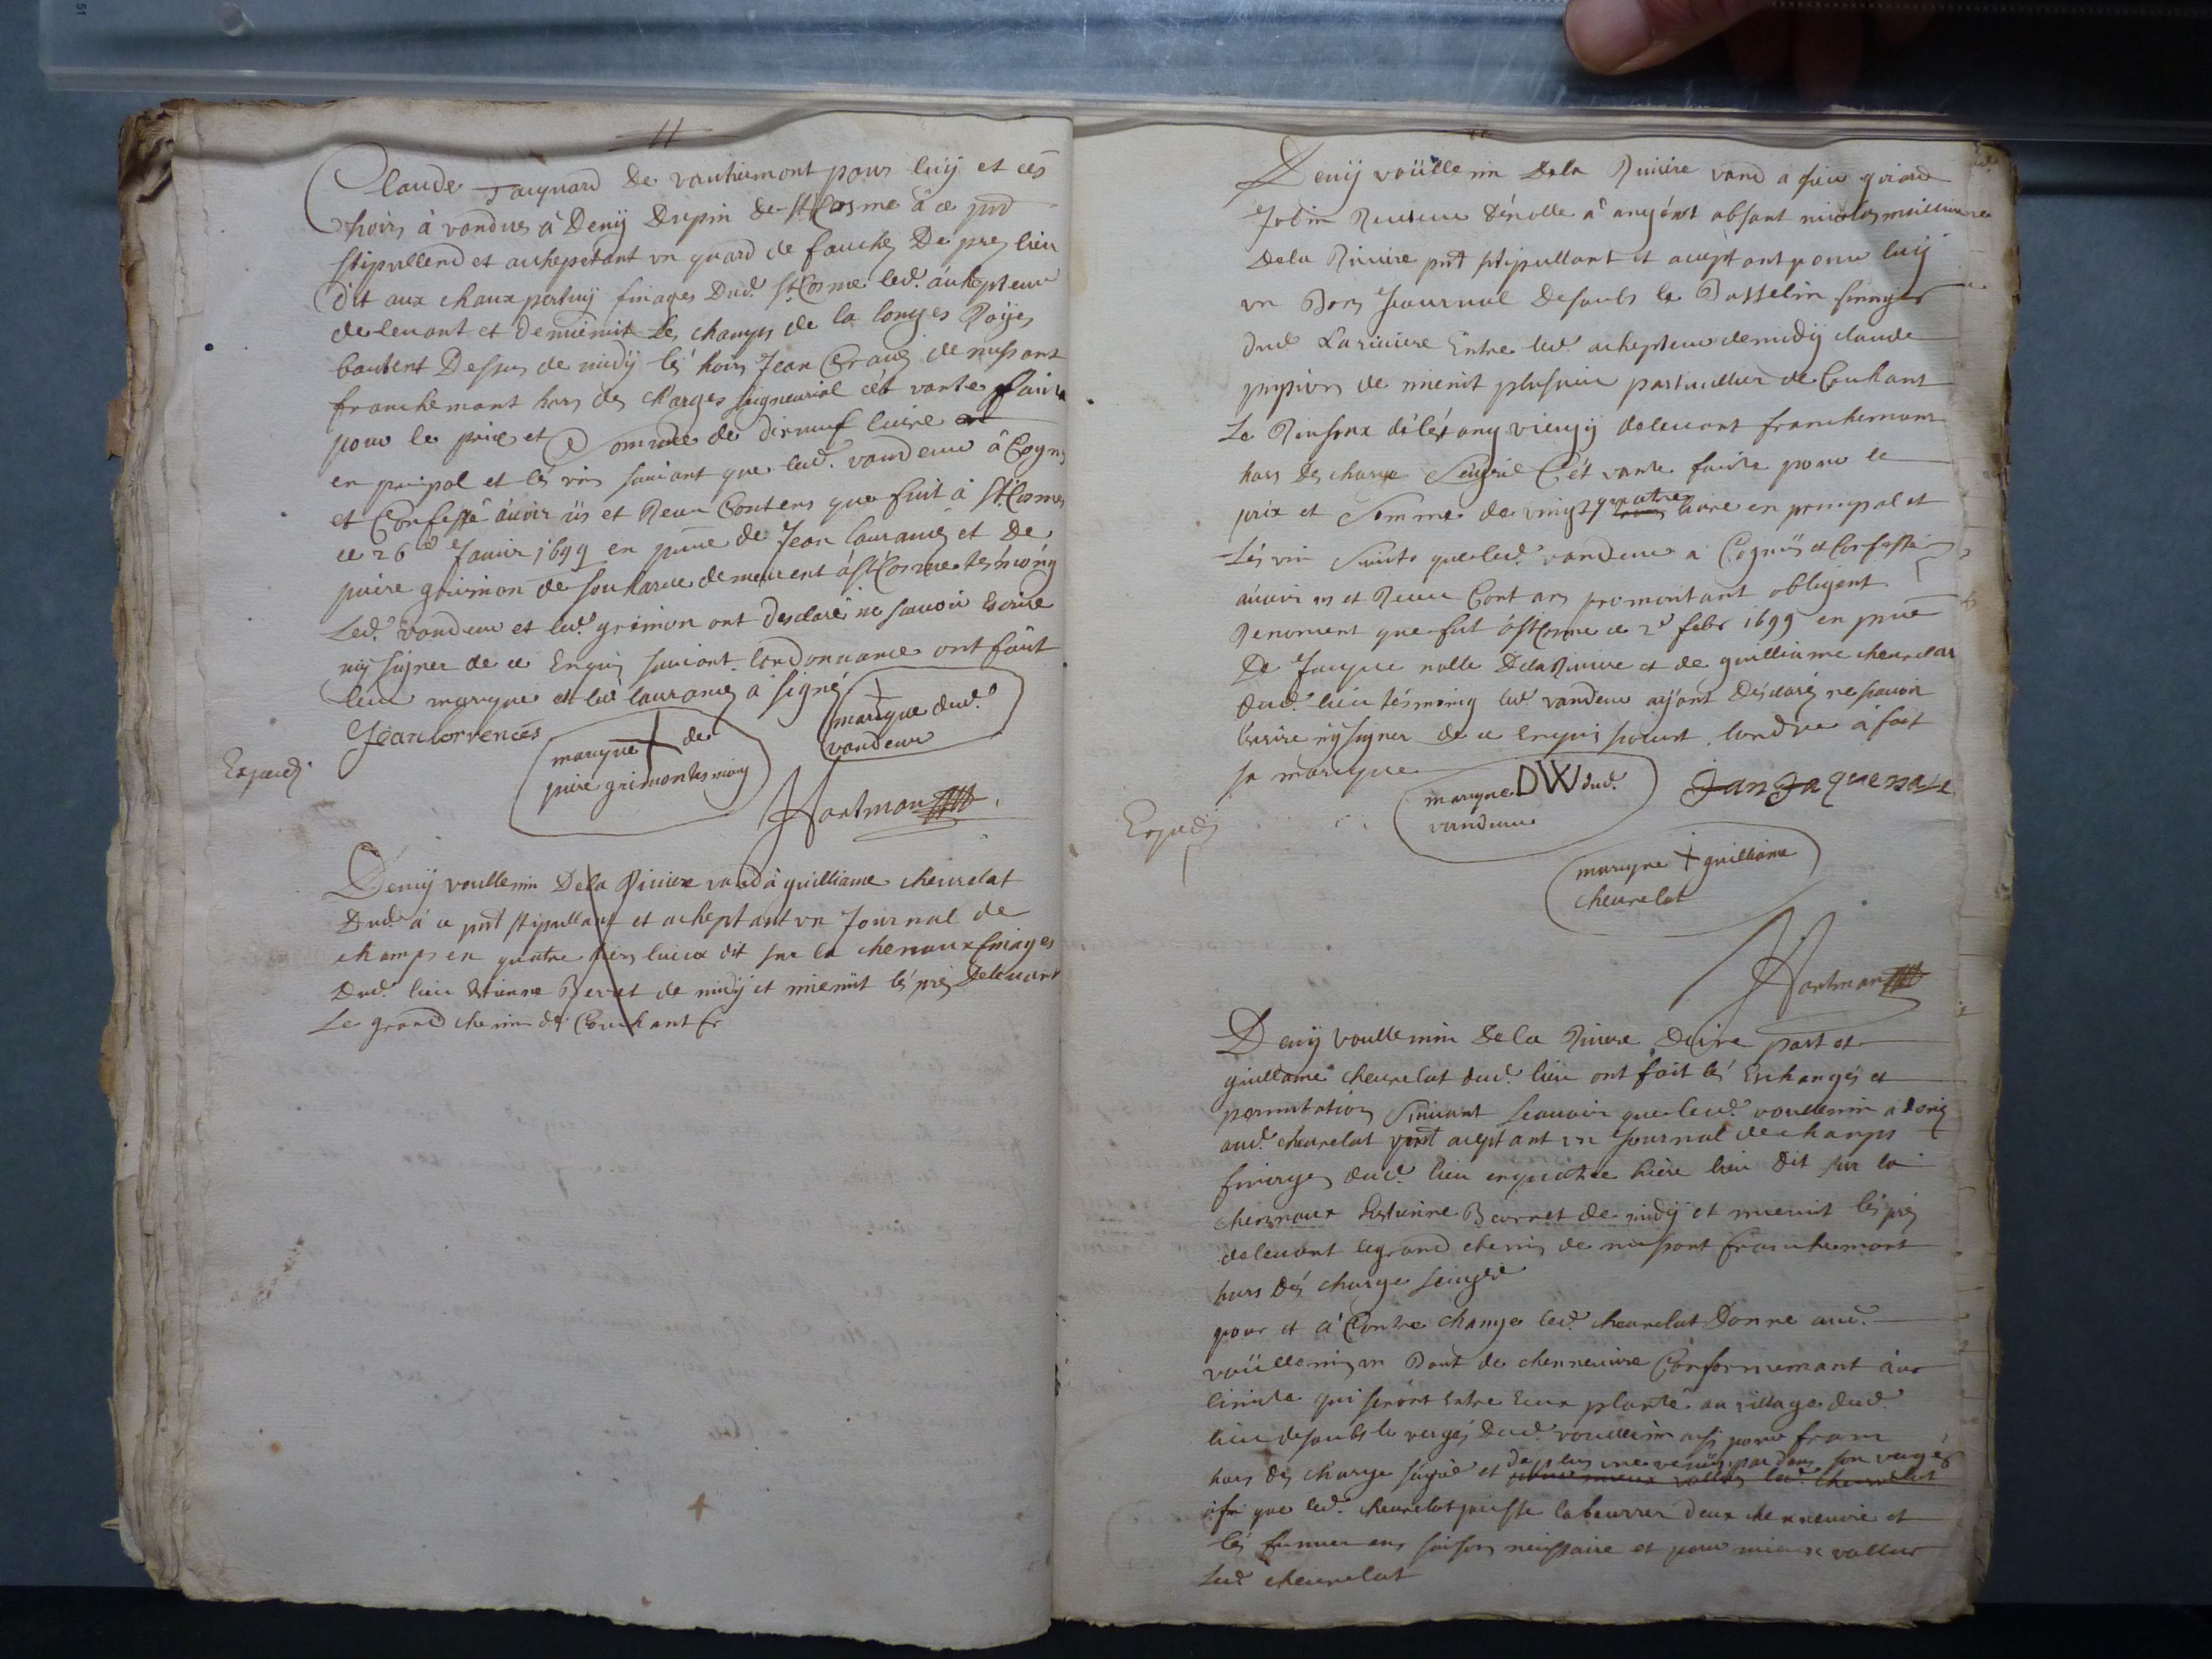 11
Claude Jacquard de vauthiermont pour luy et ces
hoirs à vandus à Denÿ Dupin de St Cosme à ce pnt
stipullend et achepetant un quard de fauché De prez lieu
dit aux chaux pertuy finages Dud. St Cosme led. achepteur
de levant et de miemit Les champs de la longes Roÿes
boutent Dessus de midÿ lés hoirs Jean de nussont
franchemant hors des charges seigneurial cét vante faicte
pour le prix et Somme de dixneuf livre
en principal et lés vins suivant que led. vandeur à Cogns
et Confessé àvoir üs et Receu Contens que fuit à St Cosmes
ce 26e Janvir 1699 en pnce de Jean Lauranes et De
piere grimon de demeurent à St Cosme tésmoing
Led. vandeur et led. grimon ont desclaré ne savoir Escrire
nÿ signer de ce Enquis suivant lordonnance ont faict
leur marque et led lauranes à signé
Jean lorrencés
marque + de
piere grimon tesmoing
+
marque dud.
vandeur
Expedié
Hartman
Denÿ voullemin De la Riviere vand à guilliame cheuvrelat
Dud. à ce pnt stipullant et acheptant un Journal de
champs en quatre dit sur la chenaux finages
Dud. lieu Estienne Berret de midÿ et miemit lés préz De levant
Le grand chemin de Couchant fr
Denÿ voüillemin De la Riviere vand a girard
Jobin à angéot absant nicolas
De la Riviere pnt stipullant et aceptant pour luÿ
un Bon Journal desoubs le Bosselin finages
dud Lariviere Entre led. achepteur de midÿ claude
de miemit plusieur particullier de Couhant
Le de lestang vieuÿ delevant franchemant
hors Des charge Seigrie Cét vante faicte pour le
prix et Somme de vingt quatre livre en principal et
Lés vin Suivts que led. vandeur a Cognüs et Confessé
àvoir us et Receu Contans promontant obligent
Renoncent que fut à St Cosme ce 2e febr 1699 en pnce
De Jacque natte De la Riviere et de guilliaume cheuvrelat
dud. lieu tésmoing led. vandeur aÿant Désclaré ne savoir
Escrire nÿ signer de ce Enquis suivant londnce à fait
sa marcque
marque DW dud.
vandeur
Jan Jaque natte
marque + guilliame
cheuvrelat
Expedié
Hartman
Denÿ voullemin De la Riviere Dune part et
guillame cheuvrelat dud. lieu ont fait lés Eschangés et
permutation Suivant scauoir que led. voullemin a doné
aud. cheuvrelat pnt aceptant un Journal de champs
finages dud. lieu en quatre lieu dit sur la
chernaux Estienne Berret de midÿ et miemit lés prés
delevant le grand chemin de nussont franchemant
hors Dés charge seigrie
pour et à Contre change led. cheuvrelat Donne aud.
voüillemin un Bout de chenneviere Conformemant aux
limite qui seront Entre Eux planté au village dud.
lieu desoubs le vergés Dud. voullemin assi pour franc
hors dés charge seigrie et de plus une par dans son vergés
pour mieux valleur led. cheuvrelat
afin que led. cheuvrelat puisse labourrer deux chenneviere et
lés fumer en saison nécessaire et pour mieux valleur
Led cheuvrelat